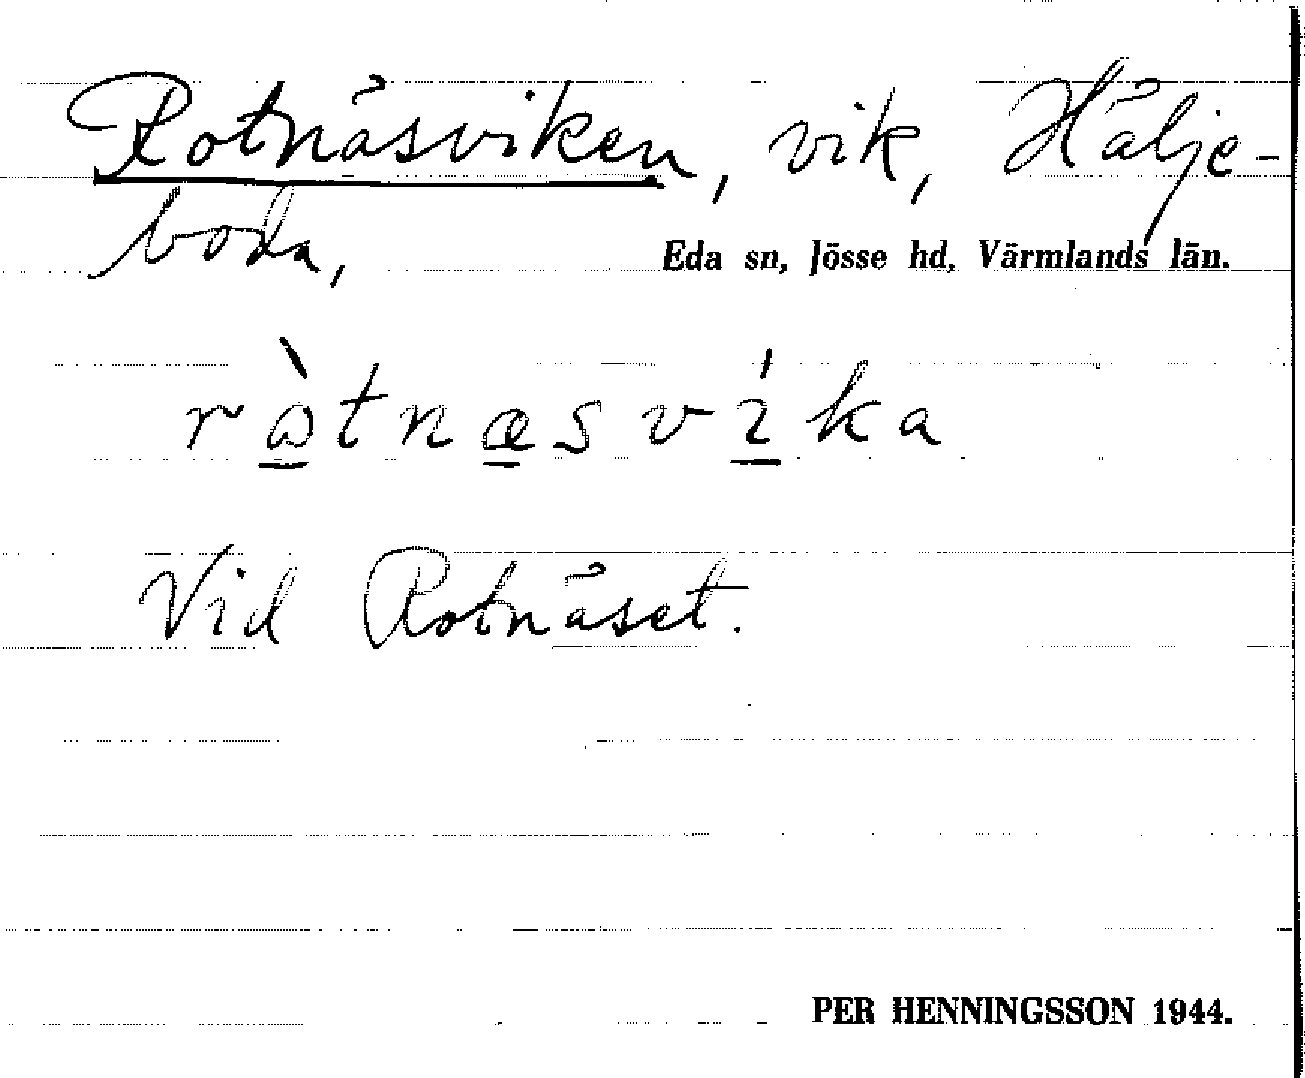 Rotnäsviken, vik, Hälje-
boda,
Eda sn, Jösse hd, Värmlands län.
ròtnæsvíka
Vid Rotnäset.
PER HENNINGSSON 1944.